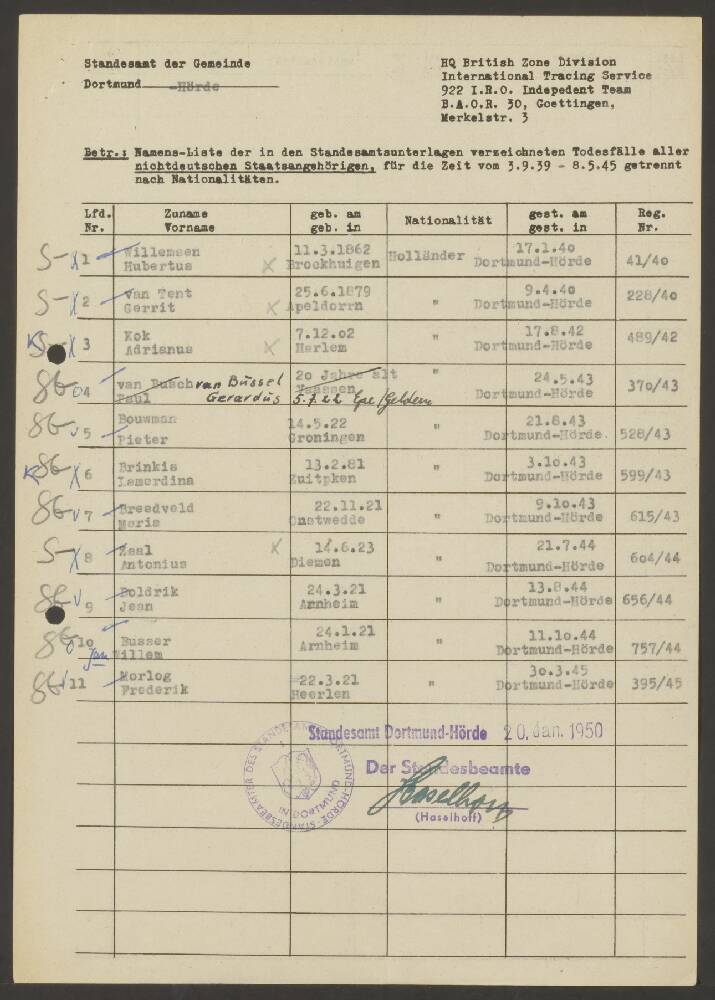 Standesamt der Gemeinde
Dortmund -Hörde
HQ British Zone Division
International Tracing Service
922 I.R.O. Indepedent Team
B.A.O.R. 30, Goettingen,
Merkelstr. 3
Betr.: Namens-Liste der in den Standesamtsunterlagen verzeichneten Todesfälle aller
nichtdeutschen Staatsangehörigen, für die Zeit vom 3.9.39 - 8.5.45 getrennt
nach Nationalitäten.
Lfd. Nr. Zuname Vorname geb. am geb. in Nationalität gest. am gest. in Reg. Nr.
S- X 1 Willemsen 11.3.1862 Holländer 17.1.40
Hubertus X Brockhuigen Dortmund-Hörde 41/40
S- X 2 van Tent 25.6.1879 " 9.4.40
Gerrit X Apeldorrn Dortmund-Hörde 228/40
K S- X 3 Kok 7.12.02 " 17.8.42
Adrianus X Harlem Dortmund-Hörde 489/42
04 van Busch van Büssel 20 Jahre alt " 24.5.43
Paul Gerardus Vaassen 5.7.22 Epe/Geldern Dortmund-Hörde 370/43
v 5 Bouwman 14.5.22 " 21.8.43
Pieter Groningen Dortmund-Hörde. 528/43
K X 6 Brinkis 13.2.81 " 3.10.43
Lamerdina Zuitpken Dortmund-Hörde 599/43
v 7 Breedveld 22.11.21 " 9.10.43
Maria Onstwedde Dortmund-Hörde 615/43
S- X 8 Zaal X 14.6.23 " 21.7.44
Antonius Diemen Dortmund-Hörde 604/44
v 9 Poldrik 24.3.21 " 13.8.44
Jean Arnheim Dortmund-Hörde 656/44
10 Busser 24.1.21 " 11.10.44
Jan Willem Arnheim Dortmund-Hörde 757/44
v 11 Morlog 22.3.21 " 30.3.45
Frederik Heerlen Dortmund-Hörde 395/45
Standesamt Dortmund-Hörde 20. Jan. 1950
Der Standesbeamte
Haselhoff
(Haselhoff)
DER STANDESBEAMTE DES STANDESAMTS DORTMUND-HÖRDE
IN DORTMUND